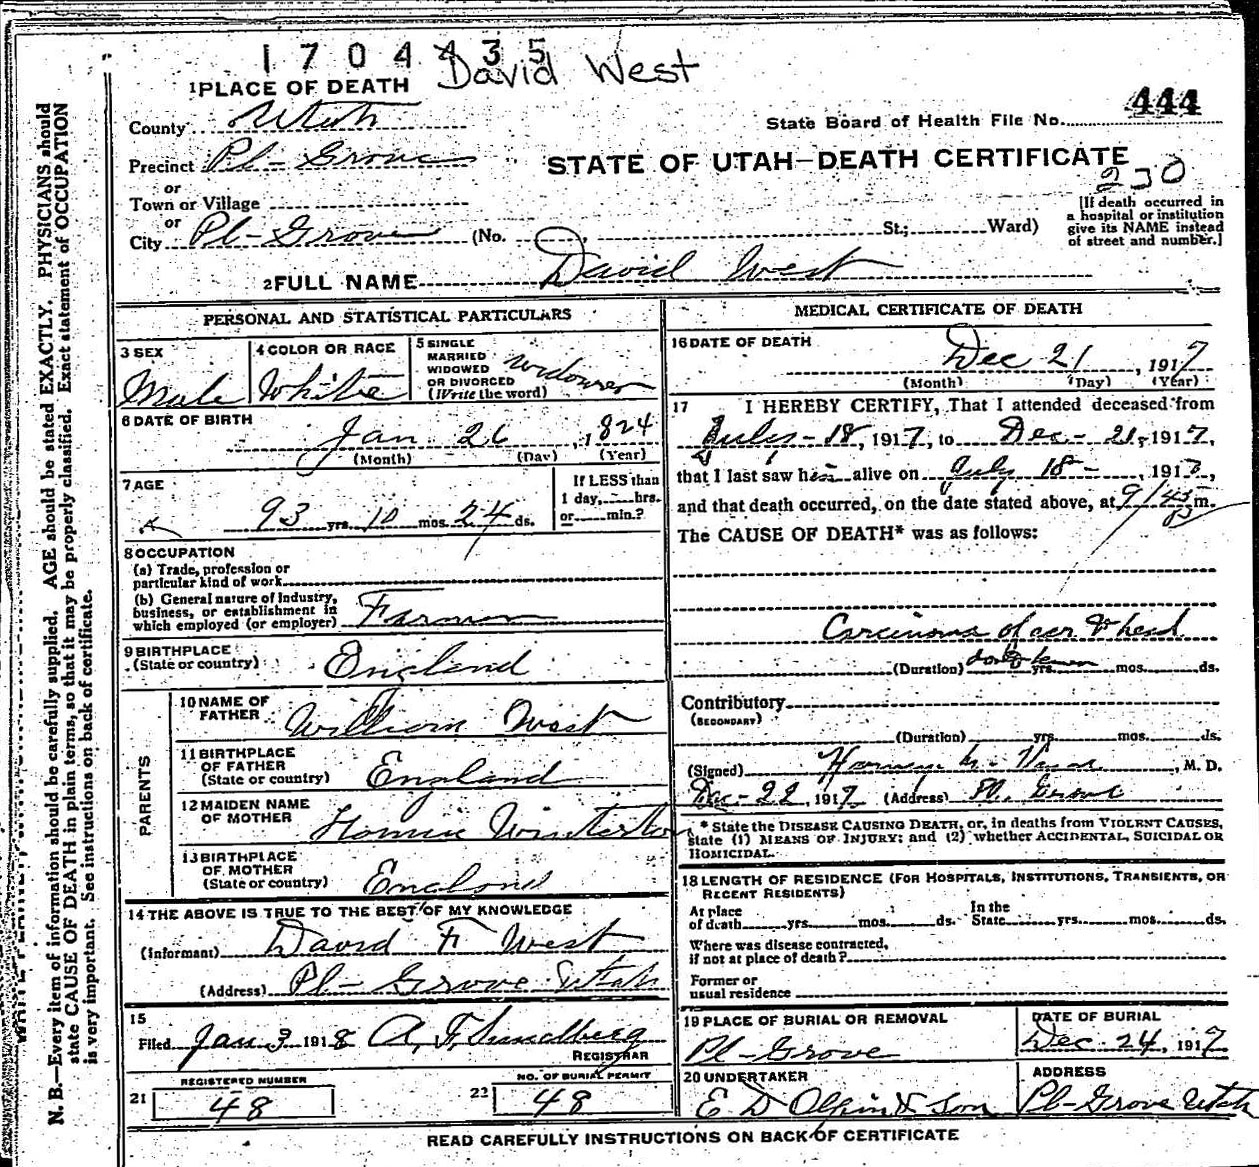 1704435
David West
1 PLACE OF DEATH
County Utah
State Board of Health File No. 444
Precinct Pl-Grove
STATE OF UTAH—DEATH CERTIFICATE
230
or
Town or Village
or
City Pl-Grove (No. St.; Ward)
[If death occurred in
a hospital or institution
give its NAME instead
of street and number.]
2 FULL NAME David West
PERSONAL AND STATISTICAL PARTICULARS
3 SEX
Male
4 COLOR OR RACE
White
5 SINGLE
MARRIED
WIDOWED
OR DIVORCED
(Write the word)
widower
6 DATE OF BIRTH
Jan 26, 1824
(Month) (Day) (Year)
7 AGE
93 yrs. 10 mos. 24 ds.
If LESS than
1 day, hrs.
or min.?
8 OCCUPATION
(a) Trade, profession or
particular kind of work
(b) General nature of Industry,
business, or establishment in
which employed (or employer) Farmer
9 BIRTHPLACE
(State or country) England
PARENTS
10 NAME OF
FATHER William West
11 BIRTHPLACE
OF FATHER
(State or country) England
12 MAIDEN NAME
OF MOTHER Winterton
13 BIRTHPLACE
OF MOTHER
(State or country) England
14 THE ABOVE IS TRUE TO THE BEST OF MY KNOWLEDGE
(Informant) David F West
(Address) Pl-Grove Utah
15
Filed Jan 3 1918 A. F. Sundberg
REGISTRAR
REGISTERED NUMBER
21 48
NO. OF BURIAL PERMIT
22 48
MEDICAL CERTIFICATE OF DEATH
16 DATE OF DEATH
Dec 21, 1917
(Month) (Day) (Year)
17 I HEREBY CERTIFY, That I attended deceased from
July-18, 1917, to Dec-21, 1917,
that I last saw him alive on July 18-, 1917,
and that death occurred, on the date stated above, at 9/45 m.
The CAUSE OF DEATH* was as follows:
Carcinoma of ear & head
(Duration) yrs. mos. ds.
Contributory
(SECONDARY)
(Duration) yrs. mos. ds.
(Signed) M. D.
Dec-22 1917 (Address) Pl. Grove
* State the DISEASE CAUSING DEATH, or, in deaths from VIOLENT CAUSES,
state (1) MEANS OF INJURY; and (2) whether ACCIDENTAL, SUICIDAL OR
HOMICIDAL.
18 LENGTH OF RESIDENCE (FOR HOSPITALS, INSTITUTIONS, TRANSIENTS, OR
RECENT RESIDENTS)
At place
of death yrs. mos. ds. In the
State yrs. mos. ds.
Where was disease contracted,
if not at place of death?
Former or
usual residence
19 PLACE OF BURIAL OR REMOVAL
Pl-Grove
DATE OF BURIAL
Dec-24, 1917
20 UNDERTAKER
E D Olpin & Son
ADDRESS
Pl-Grove Utah
READ CAREFULLY INSTRUCTIONS ON BACK OF CERTIFICATE
N. B.—Every item of information should be carefully supplied. AGE should be stated EXACTLY. PHYSICIANS should
state CAUSE OF DEATH in plain terms, so that it may be properly classified. Exact statement of OCCUPATION
is very important. See instructions on back of certificate.